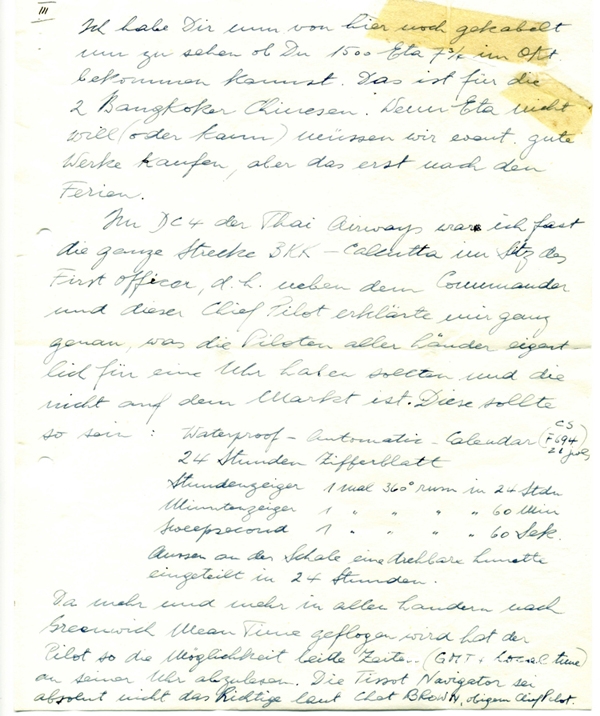 III
Ich habe Dir nun von hier noch gekabelt
um zu sehen ob Du 1500 Eta 7¾ im Okt.
bekommen kannst. Das ist für die
2 Bangkoker Chinesen. Wenn Eta nicht
will (oder kann) müssen wir event. gute
Werke kaufen, aber das erst nach den
Ferien.
Im DC4 der Thai Airways war ich fast
die ganze Strecke BKK – Calcutta im Sitz des
First Officer, d.h. neben dem Commander
und dieser Chief Pilot erklärte mir ganz
genau, was die Piloten aller Länder eigent-
lich für eine Uhr haben sollten und die
nicht auf dem Markt ist. Diese sollte
so sein : Waterproof – Automatic – Calendar (CS F694 21 jwls)
24 Stunden Zifferblatt
Stundenzeiger 1 mal 360° rum in 24 Stdn
Minutenzeiger 1 " " " " 60 Min
Sweepsecond 1 " " " " 60 Sek.
Aussen an der Schale eine drehbare Lunette
eingeteilt in 24 Stunden.
Da mehr und mehr in allen Ländern nach
Greenwich Mean Time geflogen wird hat der
Pilot so die Möglichkeit beide Zeiten (GMT + Local time)
an seiner Uhr abzulesen. Die Tissot Navigator sei
absolut nicht das Richtige laut Chet BROWN, obigem Chief Pilot.